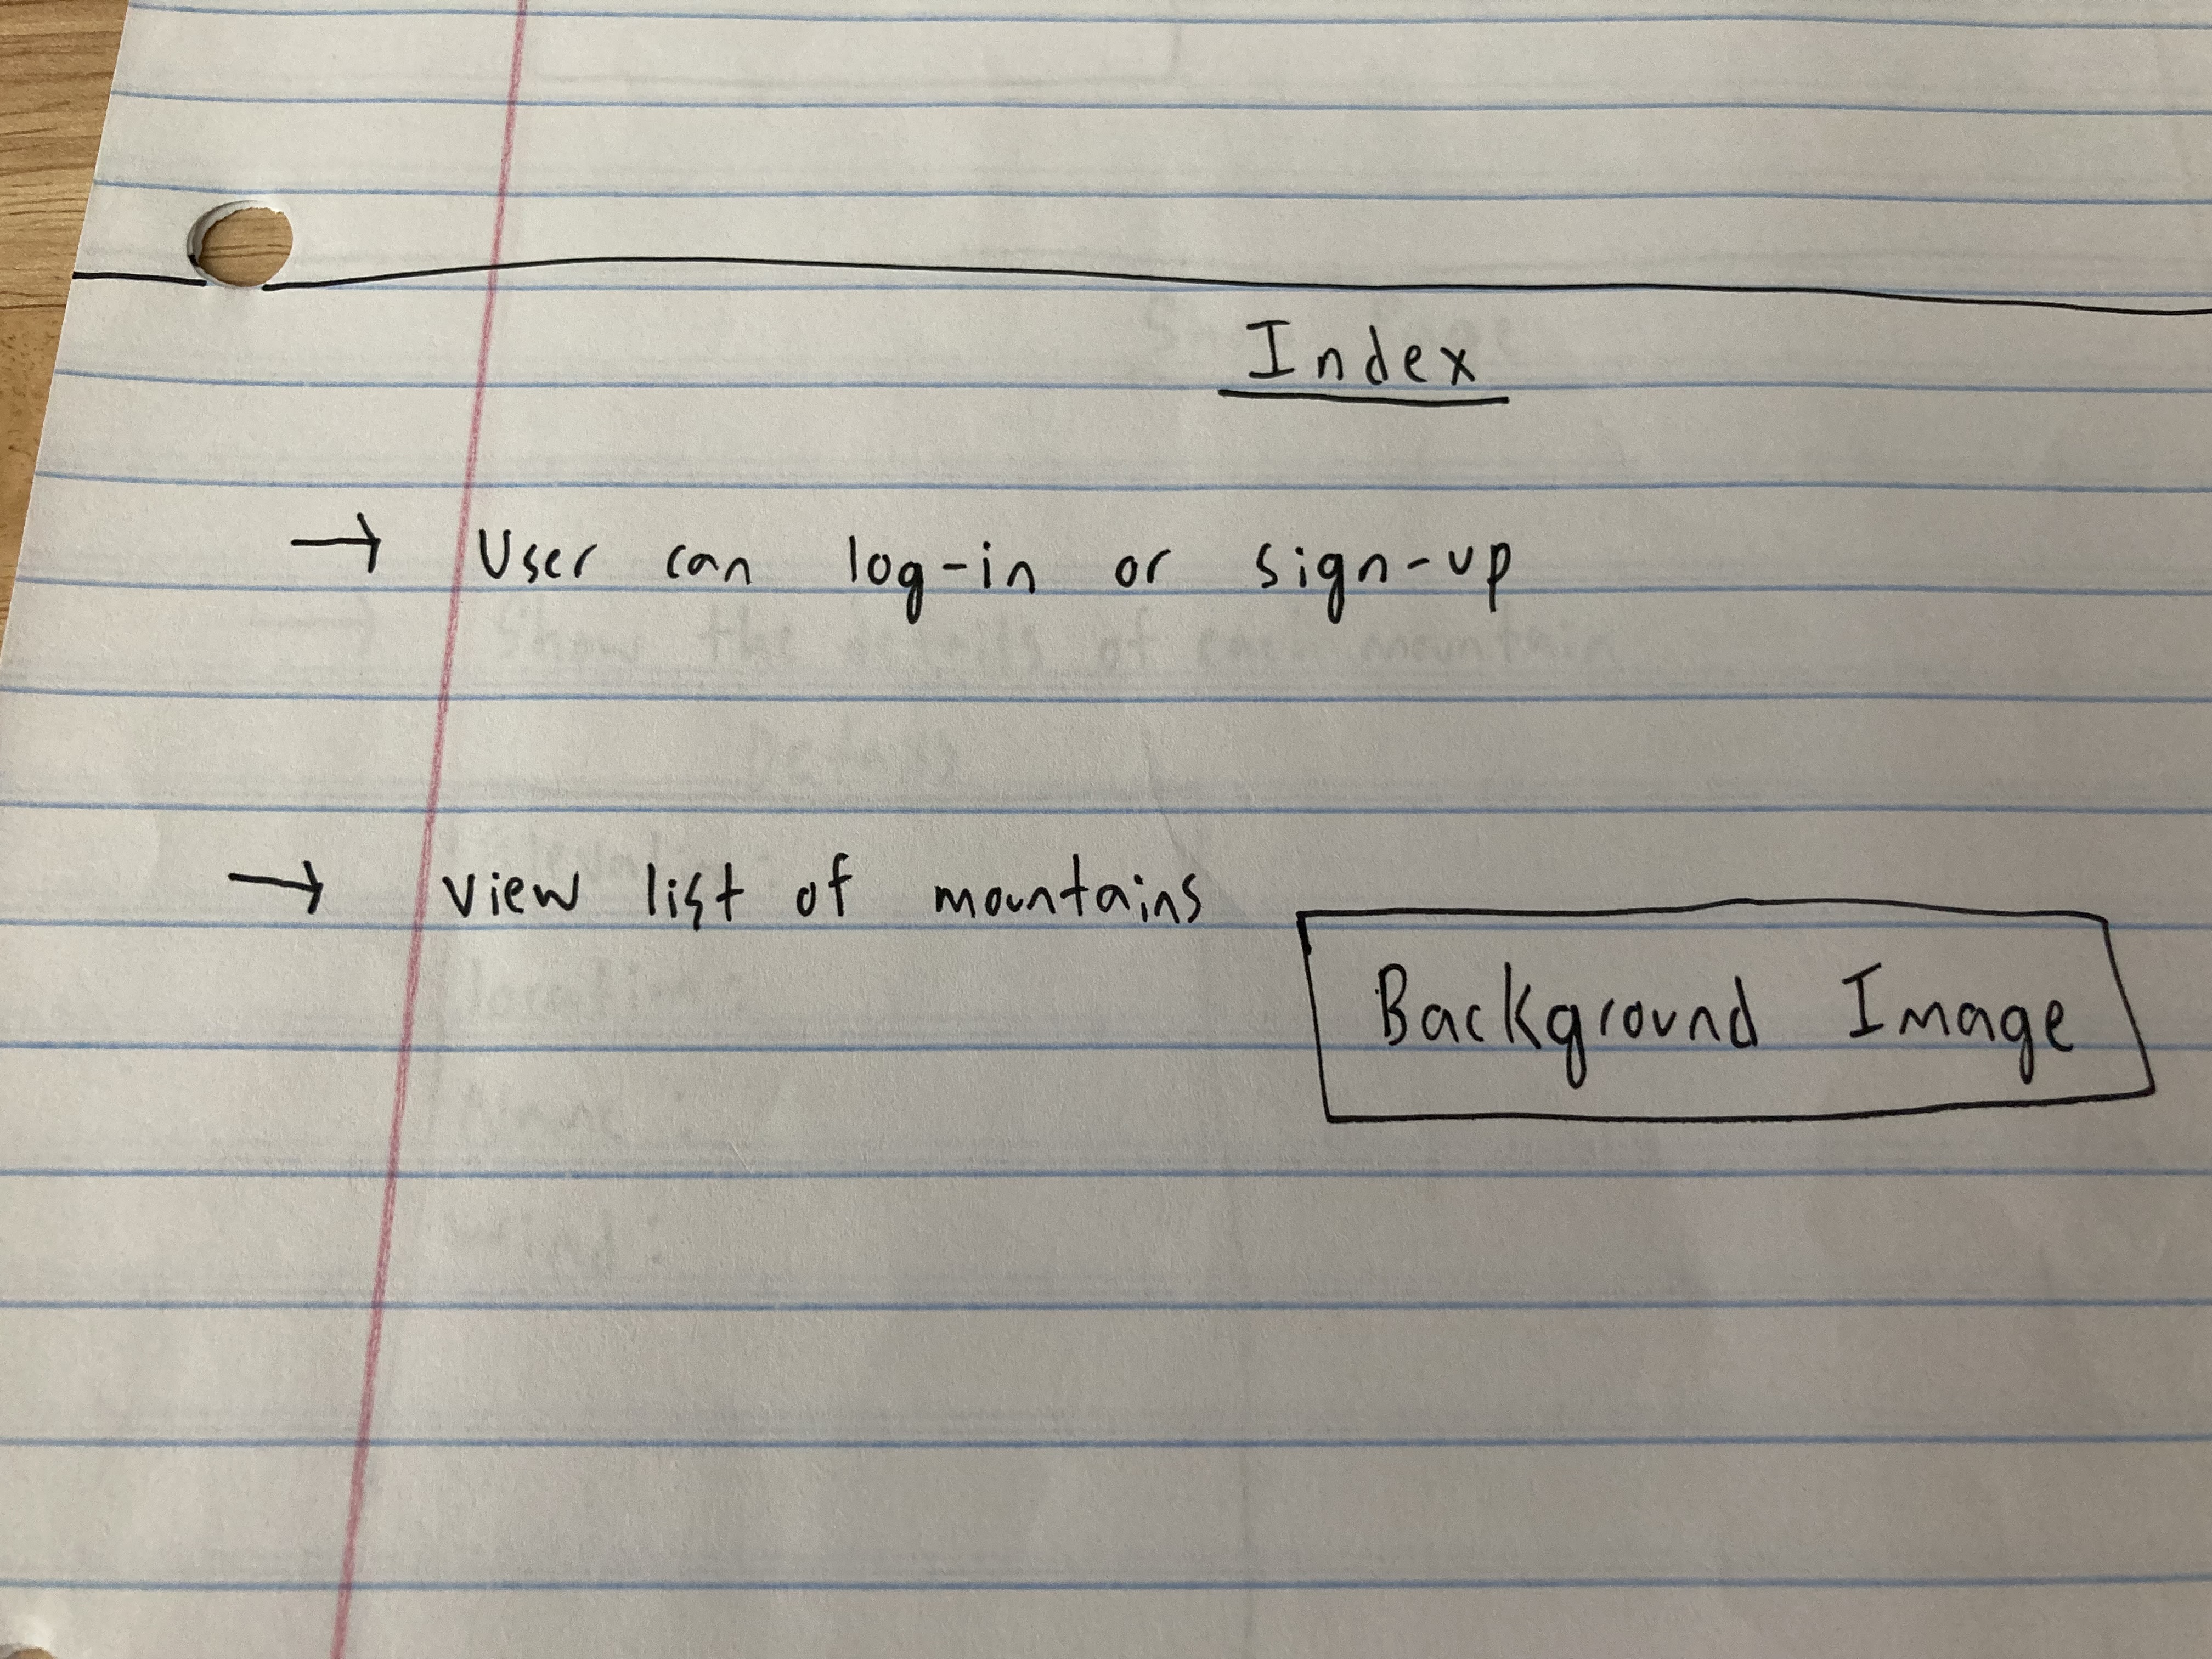 Index
→ User can log-in or sign-up
→ View list of mountains
Background Image